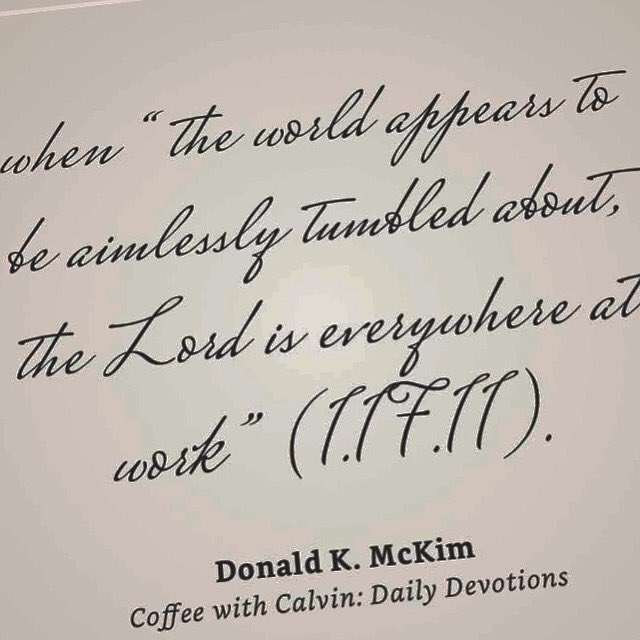 when “the world appears to
be aimlessly tumbled about,
the Lord is everywhere at
work” (1.17.11).
Donald K. McKim
Coffee with Calvin: Daily Devotions